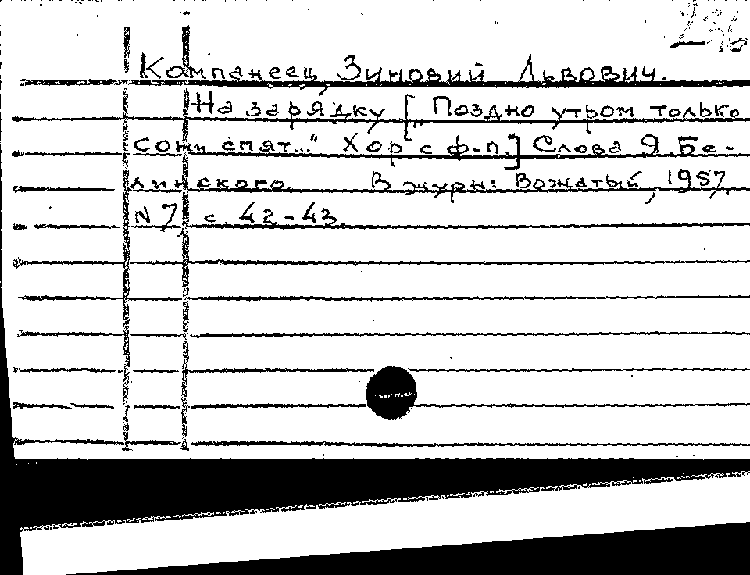 Компанеец, Зиновий Львович.
На зарядку [„Поздно утром только
сони спят..." Хор с ф-п.] Слова Я. Бе-
линского. В журн: Вожатый, 1957,
N 7, с. 42-43.